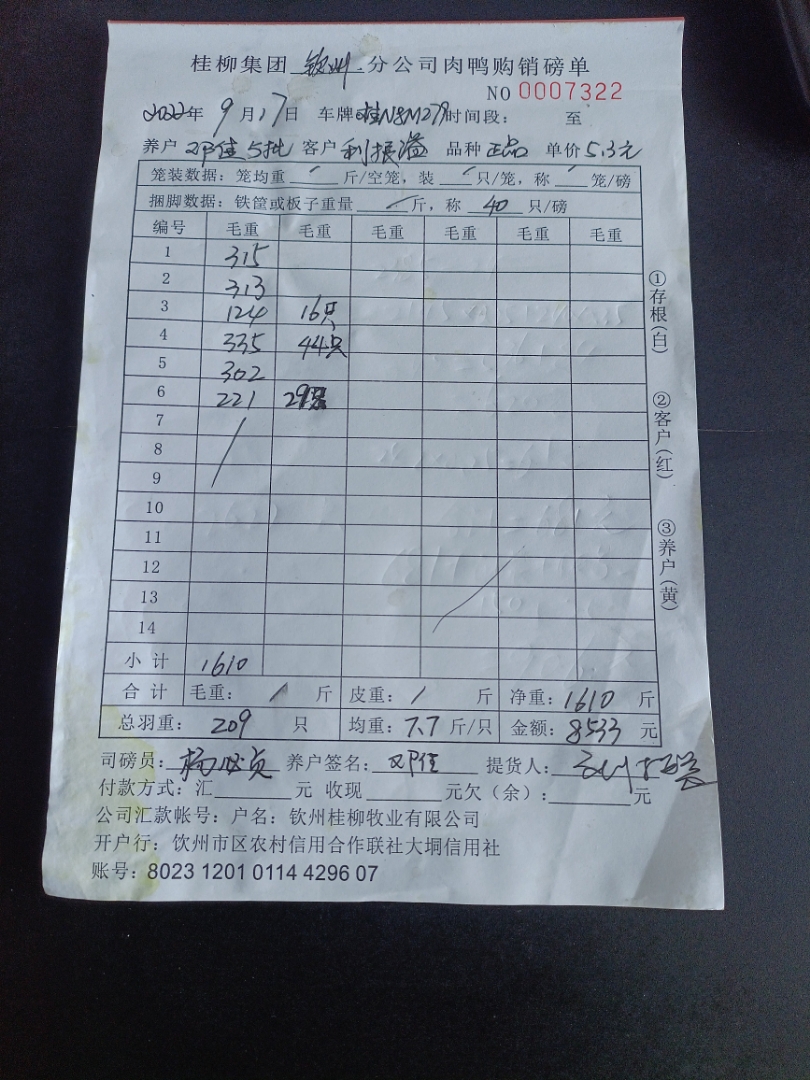 桂柳集团 钦州 分公司肉鸭购销磅单
NO 0007322
2022年 9 月 17 日 车牌 桂N8M279 时间段： 至
养户 邓佳 5批 客户 利振溢 品种 正品 单价 5.3元
笼装数据：笼均重 / 斤/空笼，装 / 只/笼，称 / 笼/磅
捆脚数据：铁筐或板子重量 / 斤，称 40 只/磅
编号 毛重 毛重 毛重 毛重 毛重 毛重
1 315
2 313
3 124 16只
4 335 44只
5 302
6 221 29只
7
8
9
10
11
12
13
14
小 计 1610
合 计 毛重： / 斤 皮重： / 斤 净重：1610 斤
总羽重： 209 只 均重：7.7 斤/只 金额：8533 元
①存根(白)
②客户(红)
③养户(黄)
司磅员： 养户签名： 邓佳 提货人：
付款方式：汇 元 收现 元欠（余）： 元
公司汇款帐号：户名：钦州桂柳牧业有限公司
开户行：钦州市区农村信用合作联社大垌信用社
账号：8023 1201 0114 4296 07